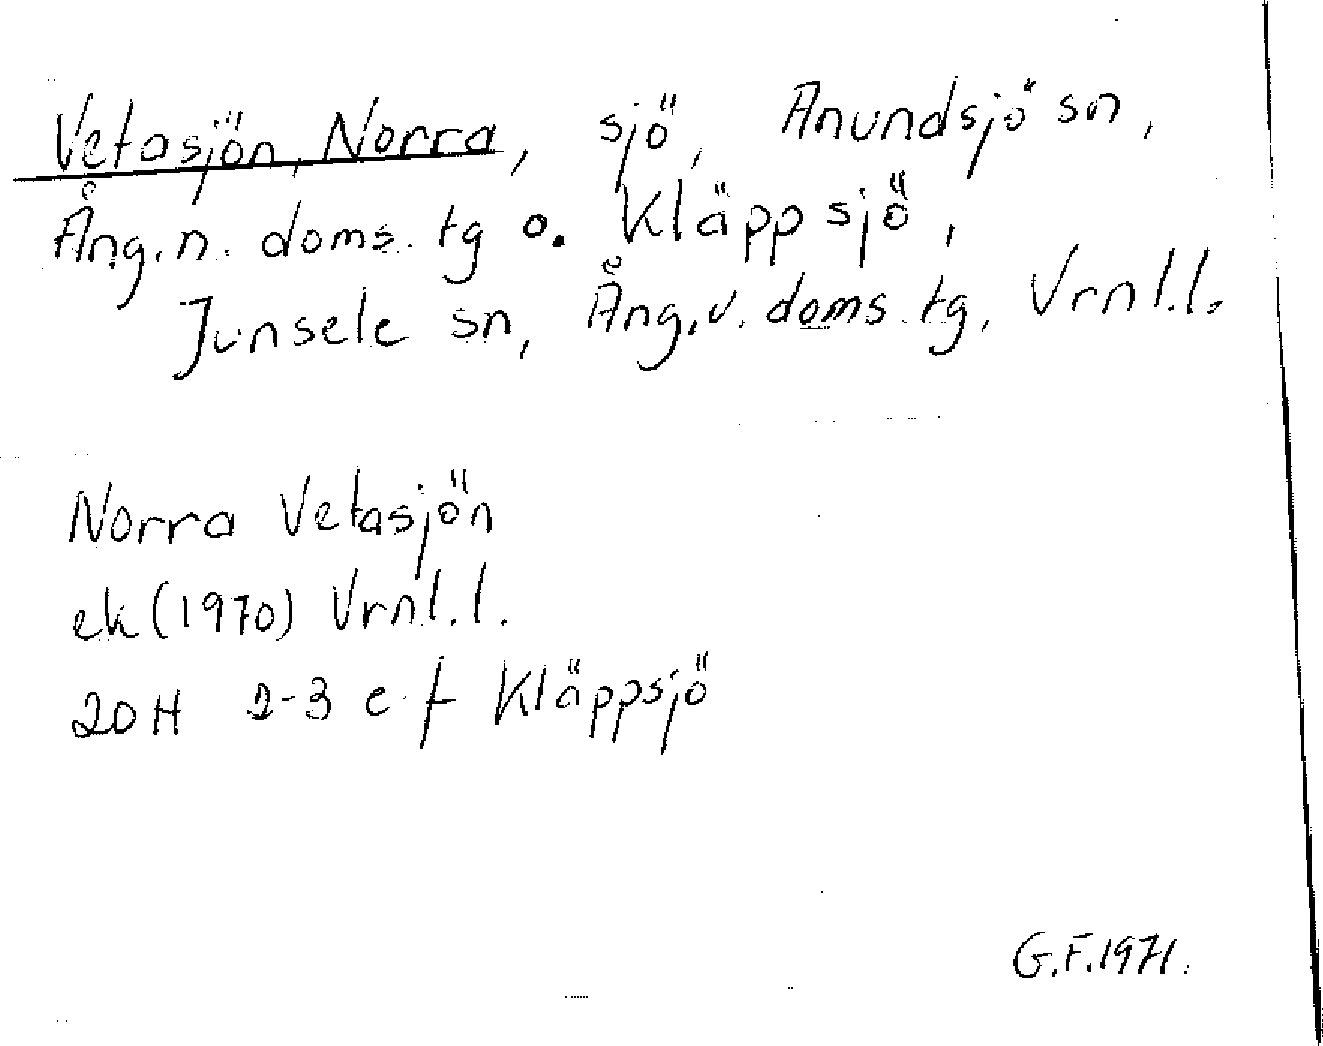 Vetasjön, Norra, sjö, Anundsjö sn,
Ång. n. doms. tg o. Kläppsjö,
Junsele sn, Ång. v. doms. tg, Vrnl.l.
Norra Vetasjön
ek (1970) Vrnl.l.
20H 2-3 e-f Kläppsjö
G.F. 1971.